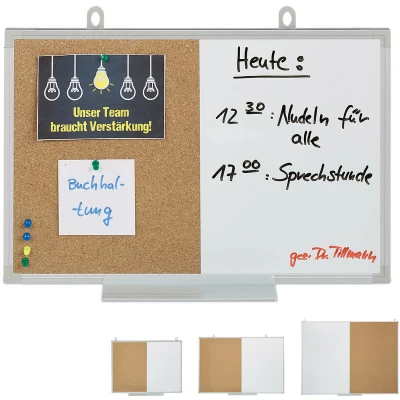 Unser Team
braucht Verstärkung!
Buchhal-
tung
Heute:
12 30: Nudeln für
alle
17 00: Sprechstunde
gez. Dr. Tillmann